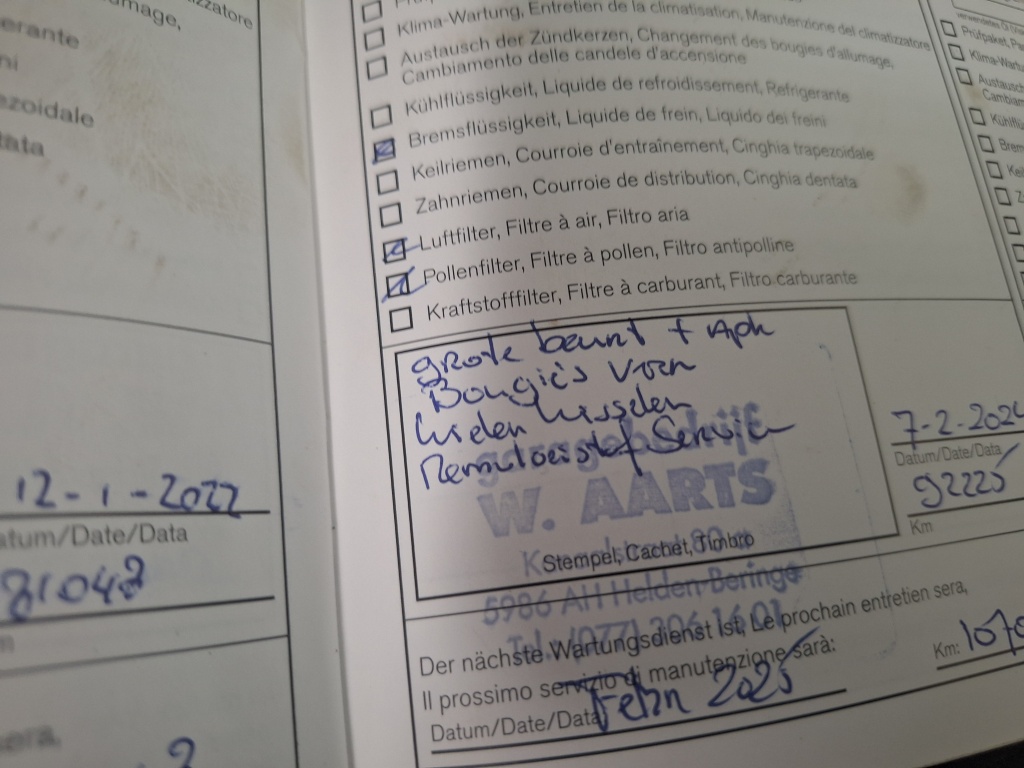 erante
ni
zoidale
tata
12-1-2022
atum/Date/Data
81048
Klima-Wartung, Entretien de la climatisation, Manutenzione del climatizzatore
Austausch der Zündkerzen, Changement des bougies d'allumage,
Cambiamento delle candele d'accensione
Kühlflüssigkeit, Liquide de refroidissement, Refrigerante
Bremsflüssigkeit, Liquide de frein, Liquido dei freini
Keilriemen, Courroie d'entraînement, Cinghia trapezoidale
Zahnriemen, Courroie de distribution, Cinghia dentata
Luftfilter, Filtre à air, Filtro aria
Pollenfilter, Filtre à pollen, Filtro antipolline
Kraftstofffilter, Filtre à carburant, Filtro carburante
grote beurt + Apk
Bougie's voor
wielen wisselen
Remvloeistof
W. AARTS
Stempel, Cachet, Timbro
5986 AH Helden-Beringe
7-2-2024
Datum/Date/Data
92225
Km
Der nächste Wartungsdienst ist, Le prochain entretien sera,
Il prossimo servizio di manutenzione sarà:
Datum/Date/Data
2025
Km: